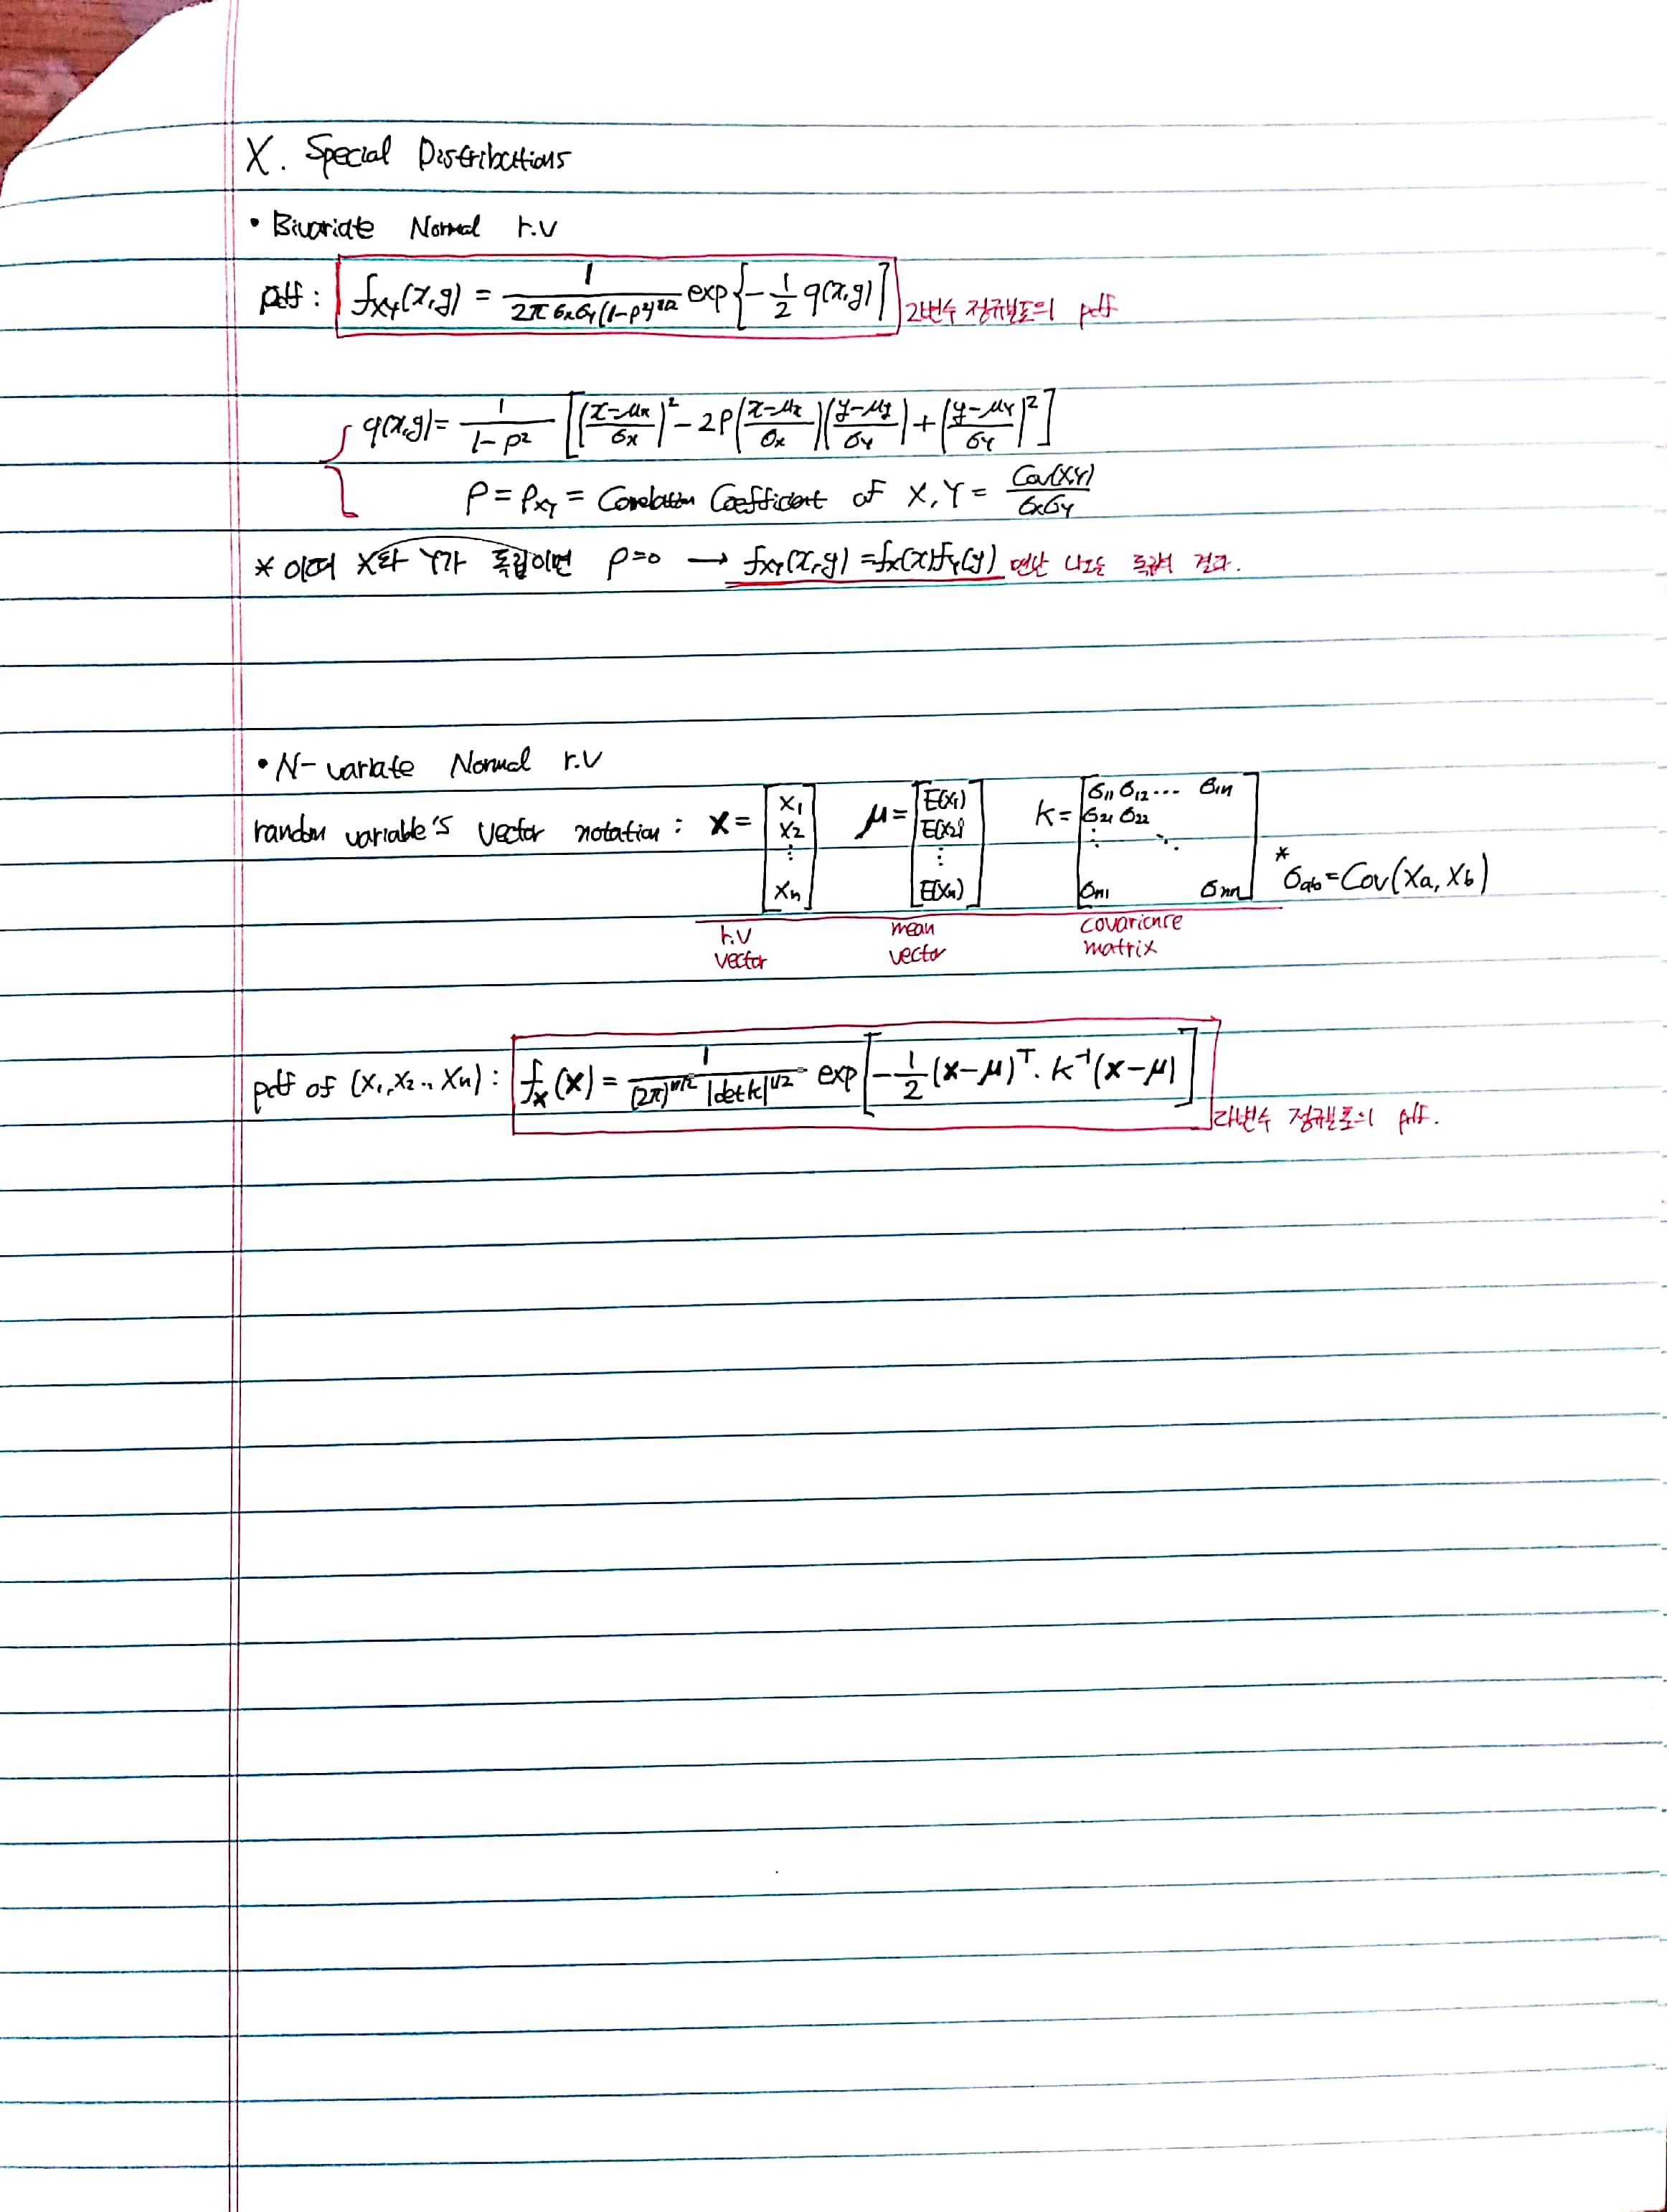 X. Special Distributions
• Bivariate Normal r.v
pdf : f_XY(x,y) = 1/(2π σx σY (1-ρ²)^1/2) exp{-1/2 q(x,y)] 2변수 정규분포의 pdf
q(x,y) = 1/(1-ρ²) [((x-μx)/σx)² - 2ρ((x-μx)/σx)((y-μy)/σY) + ((y-μY)/σY)²]
ρ = ρ_XY = Correlation Coefficient of X,Y = Cov(X,Y)/σxσY
* 이때 X와 Y가 독립이면 ρ=0 → f_XY(x,y) = fx(x)fY(y) 나오는 결과.
• N-variate Normal r.v
random variable's vector notation : X = [X1 X2 ⋮ Xn] μ = [E(X1) E(X2) ⋮ E(Xn)] K = [σ11 σ12 ⋯ σ1n σ21 σ22 ⋮ ⋱ σn1 σnn] * σab = Cov(Xa, Xb)
r.v vector
mean vector
covariance matrix
pdf of (X1, X2 .., Xn) : f_X(x) = 1/((2π)^n/2 |det K|^1/2) exp[-1/2 (x-μ)^T · K^-1 (x-μ)] 정규분포의 pdf.